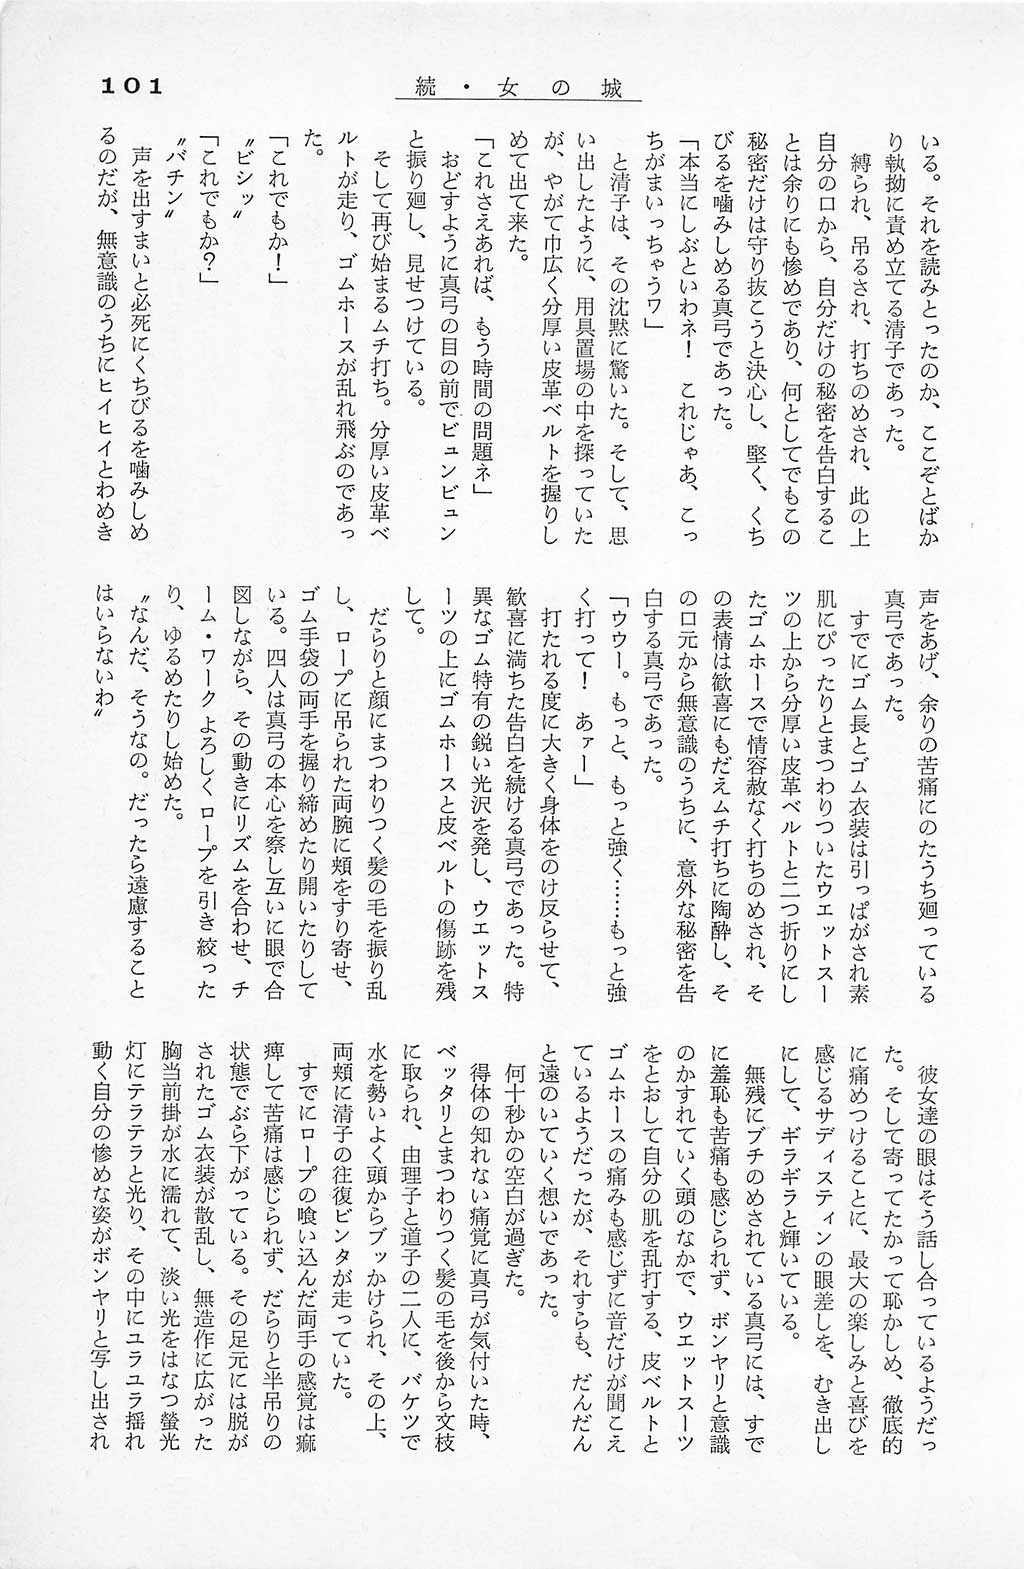 101
続・女の城
いる。それを読みとったのか、ここぞとばか
り執拗に責め立てる清子であった。
縛られ、吊るされ、打ちのめされ、此の上
自分の口から、自分だけの秘密を告白するこ
とは余りにも惨めであり、何としてでもこの
秘密だけは守り抜こうと決心し、堅く、くち
びるを噛みしめる真弓であった。
「本当にしぶといわネ！　これじゃあ、こっ
ちがまいっちゃうワ」
と清子は、その沈黙に驚いた。そして、思
い出したように、用具置場の中を探っていた
が、やがて巾広く分厚い皮革ベルトを握りし
めて出て来た。
「これさえあれば、もう時間の問題ネ」
おどすように真弓の目の前でビュンビュン
と振り廻し、見せつけている。
そして再び始まるムチ打ち。分厚い皮革ベ
ルトが走り、ゴムホースが乱れ飛ぶのであっ
た。
「これでもか！」
〝ビシッ〟
「これでもか？」
〝バチン〟
声を出すまいと必死にくちびるを噛みしめ
るのだが、無意識のうちにヒイヒイとわめき
声をあげ、余りの苦痛にのたうち廻っている
真弓であった。
すでにゴム長とゴム衣装は引っぱがされ素
肌にぴったりとまつわりついたウエットスー
ツの上から分厚い皮革ベルトと二つ折りにし
たゴムホースで情容赦なく打ちのめされ、そ
の表情は歓喜にもだえムチ打ちに陶酔し、そ
の口元から無意識のうちに、意外な秘密を告
白する真弓であった。
「ウウー。もっと、もっと強く……もっと強
く打って！　あァー」
打たれる度に大きく身体をのけ反らせて、
歓喜に満ちた告白を続ける真弓であった。特
異なゴム特有の鋭い光沢を発し、ウエットス
ーツの上にゴムホースと皮ベルトの傷跡を残
して。
だらりと顔にまつわりつく髪の毛を振り乱
し、ロープに吊られた両腕に頬をすり寄せ、
ゴム手袋の両手を握り締めたり開いたりして
いる。四人は真弓の本心を察し互いに眼で合
図しながら、その動きにリズムを合わせ、チ
ーム・ワークよろしくロープを引き絞った
り、ゆるめたりし始めた。
〝なんだ、そうなの。だったら遠慮すること
はいらないわ〟
彼女達の眼はそう話し合っているようだっ
た。そして寄ってたかって恥かしめ、徹底的
に痛めつけることに、最大の楽しみと喜びを
感じるサディスティンの眼差しを、むき出し
にして、ギラギラと輝いている。
無残にブチのめされている真弓には、すで
に羞恥も苦痛も感じられず、ボンヤリと意識
のかすれていく頭のなかで、ウエットスーツ
をとおして自分の肌を乱打する、皮ベルトと
ゴムホースの痛みも感じずに音だけが聞こえ
ているようだったが、それすらも、だんだん
と遠のいていく想いであった。
何十秒かの空白が過ぎた。
得体の知れない痛覚に真弓が気付いた時、
ベッタリとまつわりつく髪の毛を後から文枝
に取られ、由理子と道子の二人に、バケツで
水を勢いよく頭からブッかけられ、その上、
両頬に清子の往復ビンタが走っていた。
すでにロープの喰い込んだ両手の感覚は痲
痺して苦痛は感じられず、だらりと半吊りの
状態でぶら下がっている。その足元には脱が
されたゴム衣装が散乱し、無造作に広がった
胸当前掛が水に濡れて、淡い光をはなつ螢光
灯にテラテラと光り、その中にユラユラ揺れ
動く自分の惨めな姿がボンヤリと写し出され